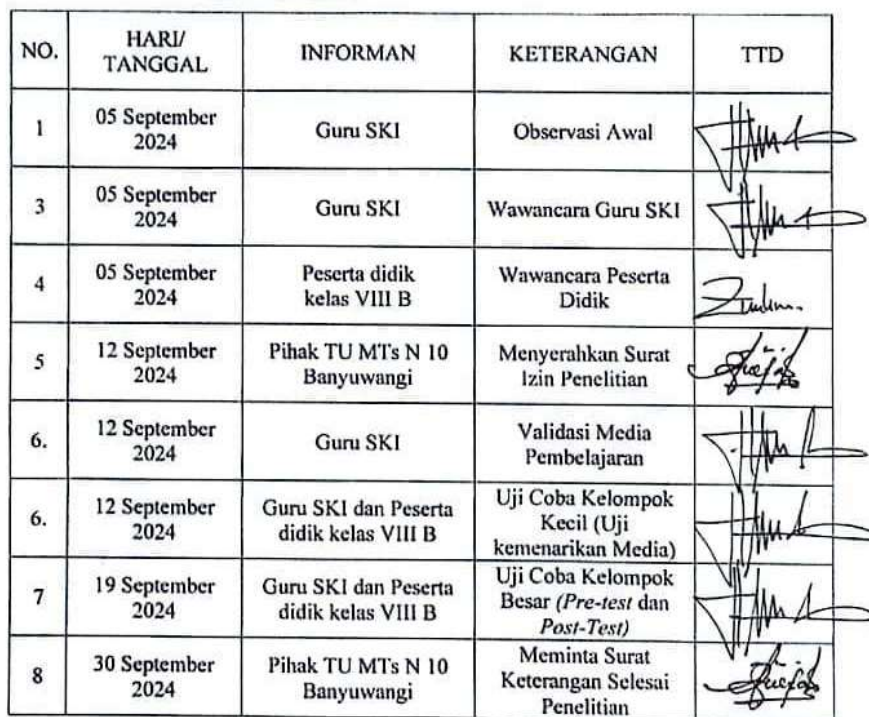 NO.
HARI/
TANGGAL
INFORMAN
KETERANGAN
TTD
1
05 September
2024
Guru SKI
Observasi Awal
3
05 September
2024
Guru SKI
Wawancara Guru SKI
4
05 September
2024
Peserta didik
kelas VIII B
Wawancara Peserta
Didik
5
12 September
2024
Pihak TU MTs N 10
Banyuwangi
Menyerahkan Surat
Izin Penelitian
6.
12 September
2024
Guru SKI
Validasi Media
Pembelajaran
6.
12 September
2024
Guru SKI dan Peserta
didik kelas VIII B
Uji Coba Kelompok
Kecil (Uji
kemenarikan Media)
7
19 September
2024
Guru SKI dan Peserta
didik kelas VIII B
Uji Coba Kelompok
Besar (Pre-test dan
Post-Test)
8
30 September
2024
Pihak TU MTs N 10
Banyuwangi
Meminta Surat
Keterangan Selesai
Penelitian